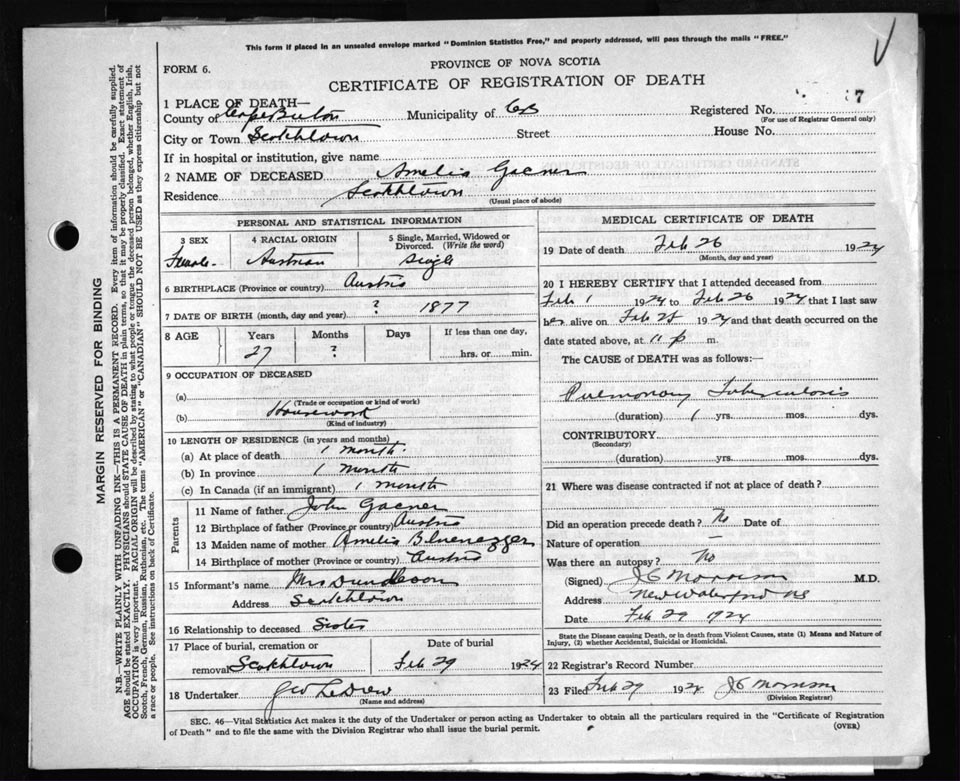 This form if placed in an unsealed envelope marked "Dominion Statistics Free," and properly addressed, will pass through the mails "FREE."
PROVINCE OF NOVA SCOTIA
FORM 6.
CERTIFICATE OF REGISTRATION OF DEATH
1 PLACE OF DEATH—
County of Cape Breton Municipality of CB Registered No. 7
(For use of Registrar General only)
City or Town Scotchtown Street House No.
If in hospital or institution, give name
2 NAME OF DECEASED Amelia Gacner
Residence Scotchtown
(Usual place of abode)
PERSONAL AND STATISTICAL INFORMATION
3 SEX 4 RACIAL ORIGIN 5 Single, Married, Widowed or Divorced. (Write the word)
Female Austrian Single
6 BIRTHPLACE (Province or country) Austria
7 DATE OF BIRTH (month, day and year) ? 1877
8 AGE Years Months Days If less than one day,
27 ? hrs. or min.
9 OCCUPATION OF DECEASED
(a)
(Trade or occupation or kind of work)
(b) Housework
(Kind of industry)
10 LENGTH OF RESIDENCE (in years and months)
(a) At place of death 1 month
(b) In province 1 month
(c) In Canada (if an immigrant) 1 month
Parents
11 Name of father John Gacner
12 Birthplace of father (Province or country) Austria
13 Maiden name of mother Amelia
14 Birthplace of mother (Province or country) Austria
15 Informant's name Mrs
Address Scotchtown
16 Relationship to deceased Sister
17 Place of burial, cremation or Date of burial
removal Scotchtown Feb 29 1924
18 Undertaker Geo LeDrew
(Name and address)
MEDICAL CERTIFICATE OF DEATH
19 Date of death Feb 26 1924
(Month, day and year)
20 I HEREBY CERTIFY that I attended deceased from
Feb 1 1924 to Feb 26 1924 that I last saw
her alive on Feb 25 1924 and that death occurred on
date stated above, at 11 p m.
The CAUSE of DEATH was as follows:—
Pulmonary Tuberculosis
(duration) 1 yrs. mos. dys.
CONTRIBUTORY
(Secondary)
(duration) yrs. mos. dys.
21 Where was disease contracted if not at place of death?
Did an operation precede death? No Date of
Nature of operation —
Was there an autopsy? No
(Signed) J C Morrison M.D.
Address New Waterford NS
Date Feb 29 1924
State the Disease causing Death, or in death from Violent Causes, state (1) Means and Nature of
Injury, (2) whether Accidental, Suicidal or Homicidal.
22 Registrar's Record Number
23 Filed Feb 29 1924 J C Morrison
(Division Registrar)
SEC. 46—Vital Statistics Act makes it the duty of the Undertaker or person acting as Undertaker to obtain all the particulars required in the "Certificate of Registration
of Death" and to file the same with the Division Registrar who shall issue the burial permit.
(OVER)
MARGIN RESERVED FOR BINDING
N.B.—WRITE PLAINLY WITH UNFADING INK—THIS IS A PERMANENT RECORD. Every item of information should be carefully supplied.
AGE should be stated EXACTLY. PHYSICIANS should STATE CAUSE OF DEATH in plain terms, so that it may be properly classified. Exact statement of
OCCUPATION is very important. RACIAL ORIGIN will be described by stating to what people or tongue the deceased person belonged, whether English, Irish,
Scotch, French, German, Russian, Ruthenian, etc. The terms "AMERICAN" or "CANADIAN" SHOULD NOT BE USED as they express citizenship but not
a race or people. See instructions on back of Certificate.